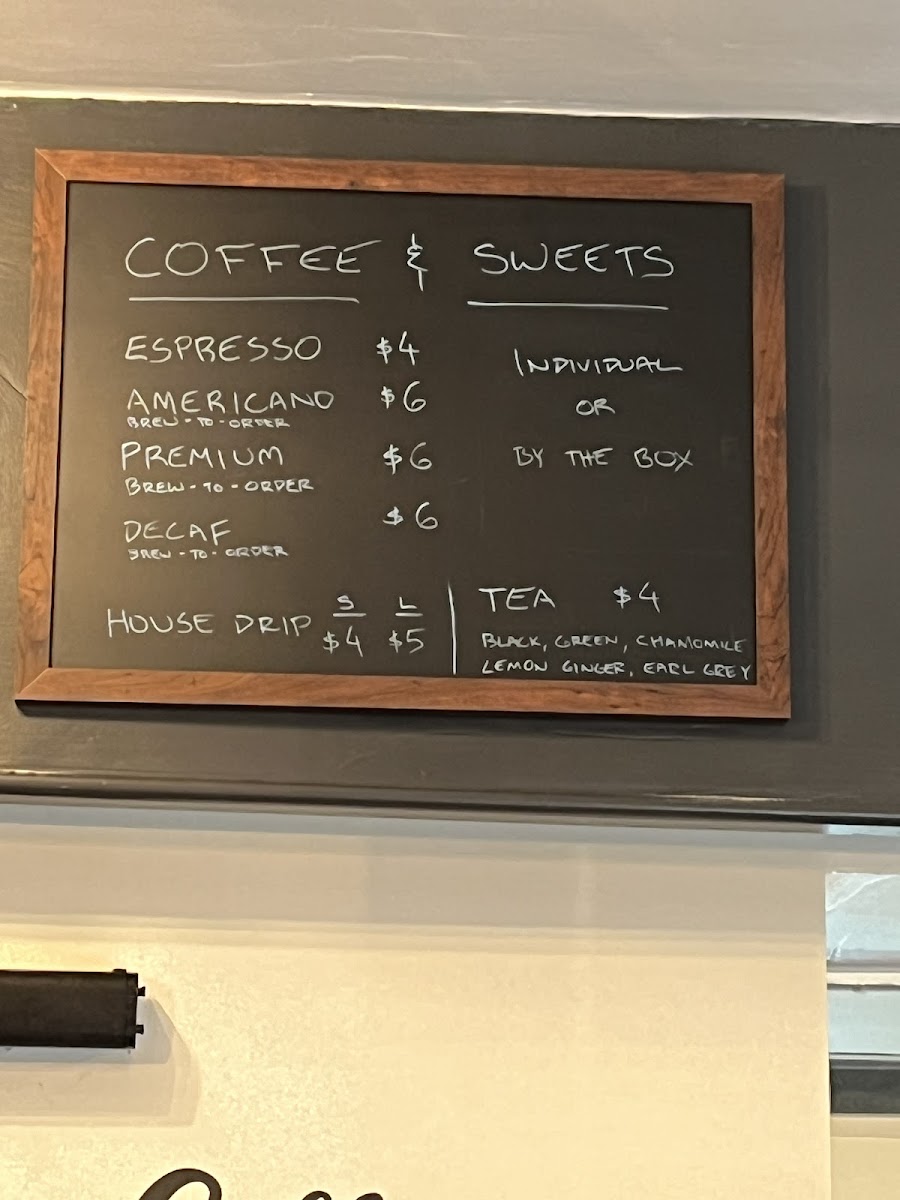 COFFEE & SWEETS
ESPRESSO $4
AMERICANO $6
BREW-TO-ORDER
PREMIUM $6
BREW-TO-ORDER
DECAF $6
BREW-TO-ORDER
INDIVIDUAL
OR
BY THE BOX
S L
HOUSE DRIP $4 $5
TEA $4
BLACK, GREEN, CHAMOMILE
LEMON GINGER, EARL GREY